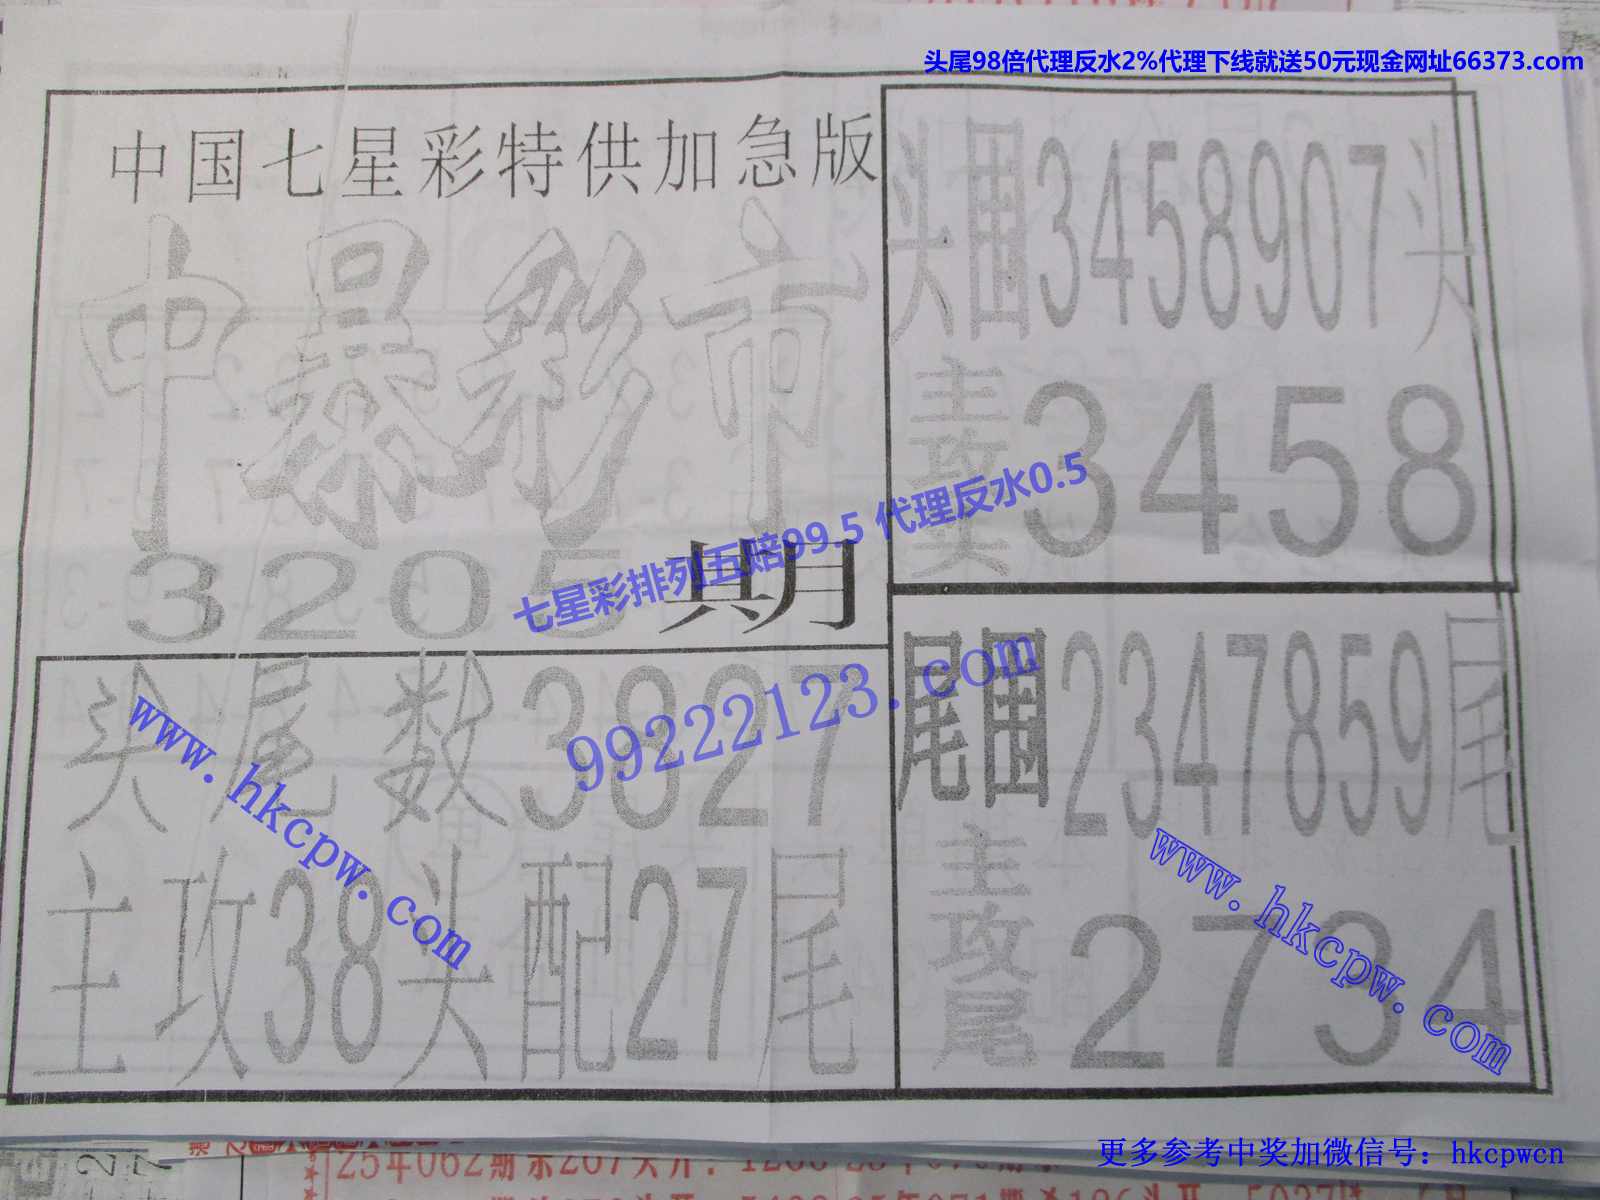 头尾98倍代理反水2%代理下线就送50元现金网址66373.com
中国七星彩特供加急版
中暴彩市
3205期
头尾数3827
主攻38头配27尾
头围3458907头
主攻头3458
尾围2347859尾
主攻尾2734
七星彩排列五赔99.5 代理反水0.5
99222123.com
www.hkcpw.com
www.hkcpw.com
更多参考中奖加微信号：hkcpwcn